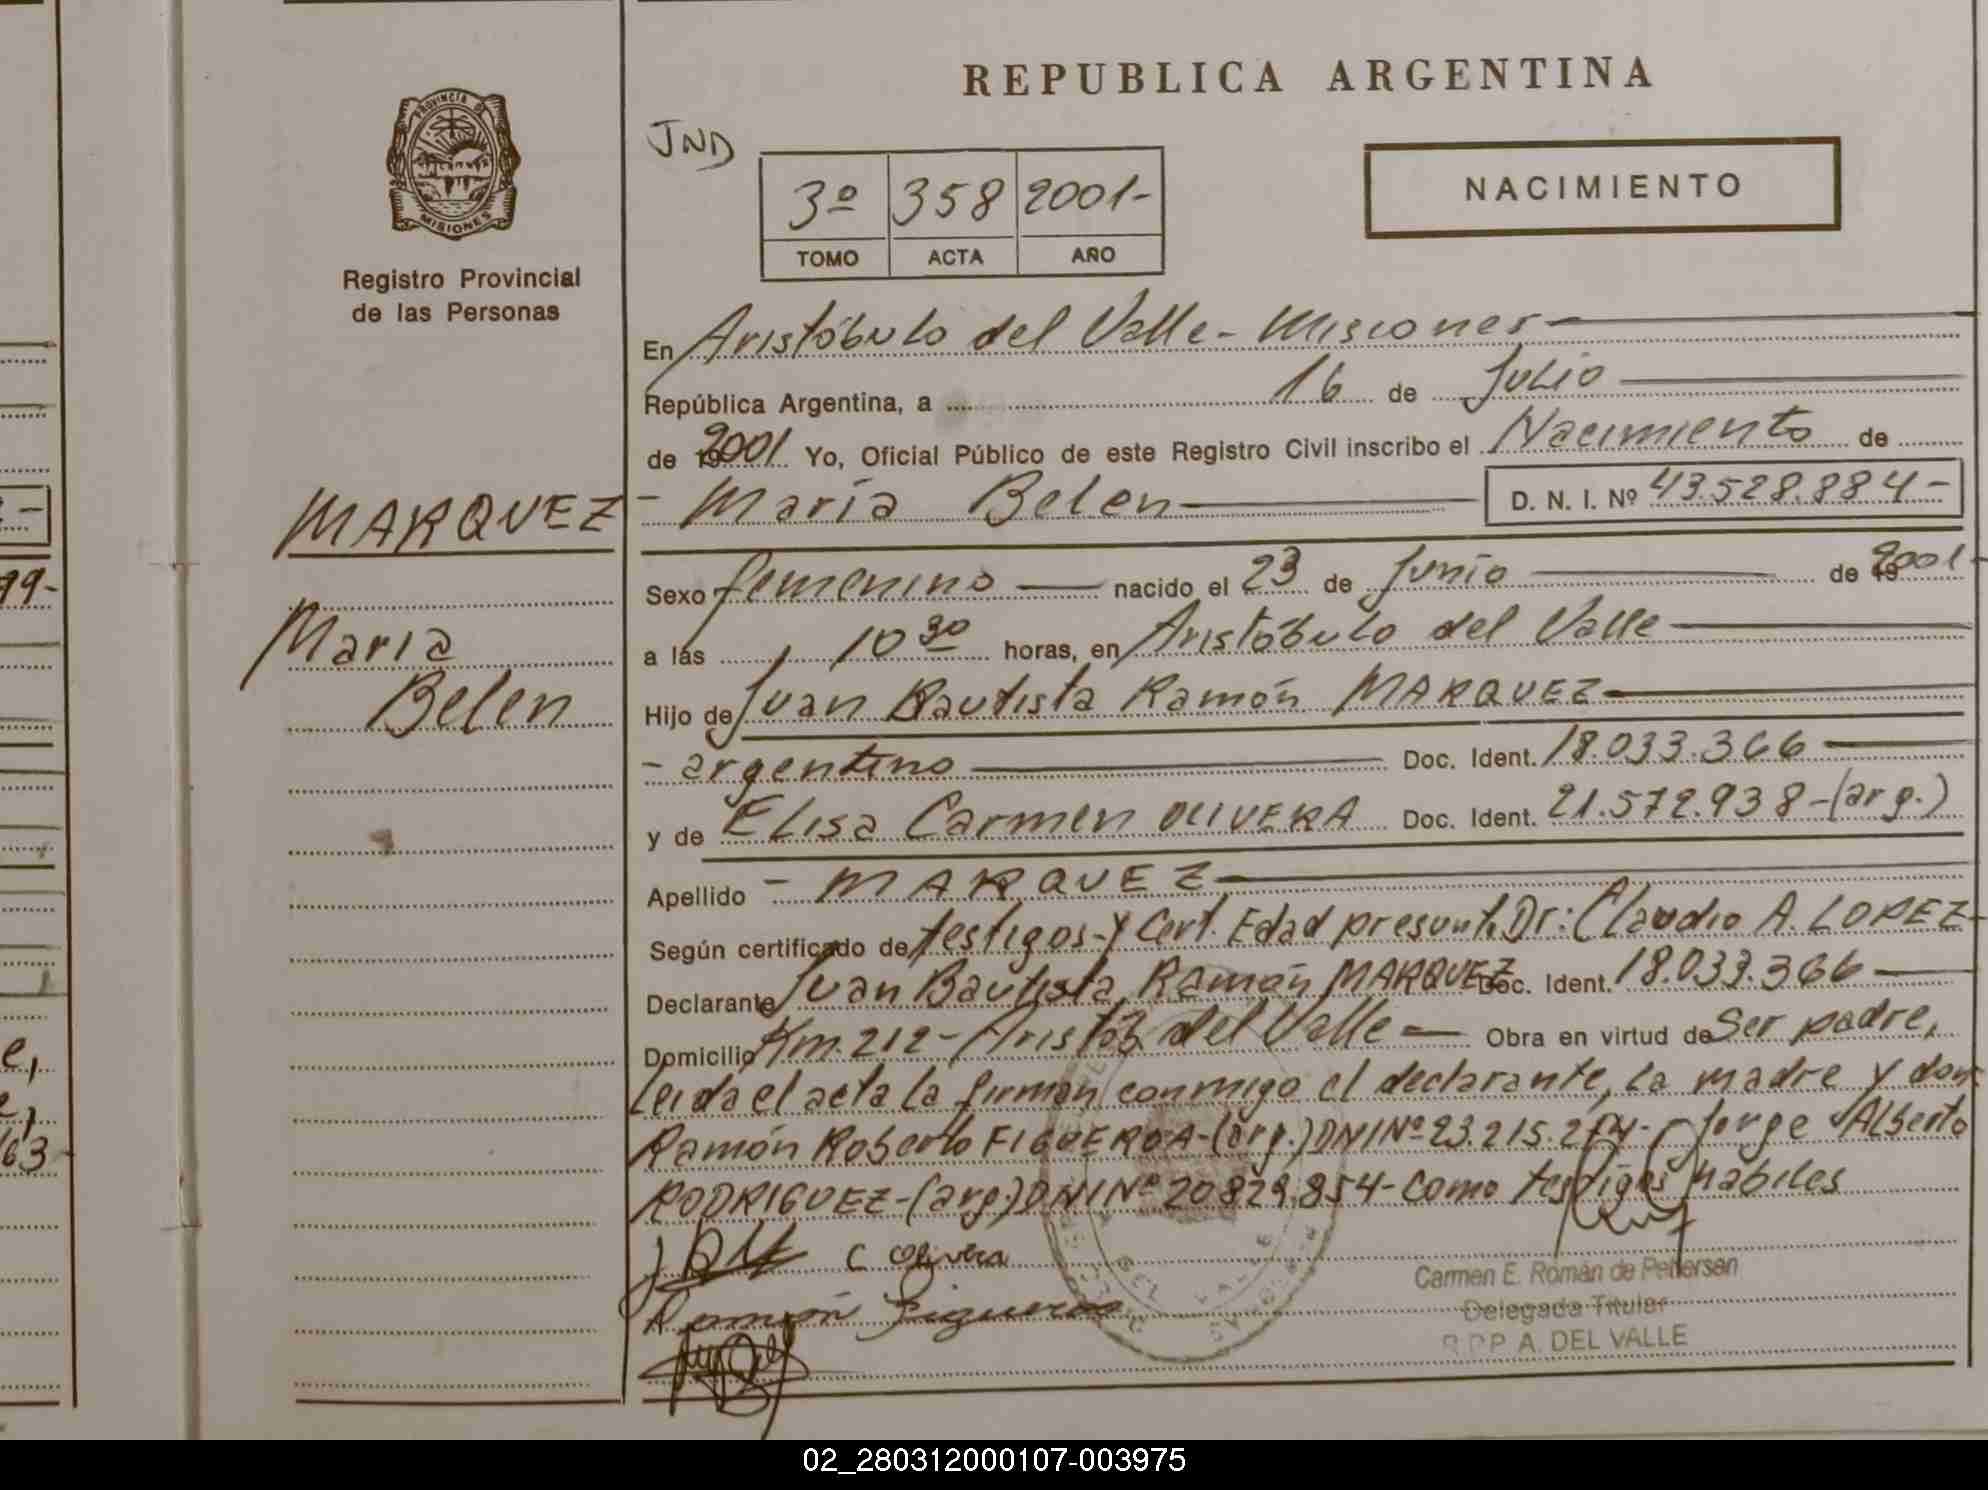 REPUBLICA ARGENTINA
PROVINCIA DE
MISIONES
Registro Provincial
de las Personas
JND
3º 358 2001-
TOMO ACTA AÑO
NACIMIENTO
En Aristóbulo del Valle - Misiones
República Argentina, a 16 de Julio
de 2001 Yo, Oficial Público de este Registro Civil inscribo el Nacimiento de
- María Belen D. N. I. Nº 43.528.884-
MARQUEZ
Maria
Belen
Sexo femenino nacido el 23 de Junio de 2001-
a las 10 30 horas, en Aristóbulo del Valle
Hijo de Juan Bautista Ramón MARQUEZ
- argentino Doc. Ident. 18.033.366
y de Elisa Carmen OLIVERA Doc. Ident. 21.572.938-(arg.)
Apellido - MARQUEZ
Según certificado de testigos-y Cert. Edad presunt. Dr: Claudio A. LOPEZ-
Declarante Juan Bautista Ramón MARQUEZ Doc. Ident. 18.033.366
Domicilio Km.212-Aristób. del Valle Obra en virtud de Ser padre,
Leida el acta la firman conmigo el declarante, la madre y don
Ramón Roberto FIGUEROA-(arg.) DNI Nº 23.215.274- Jorge Alberto
RODRIGUEZ-(arg.) DNI Nº 20.829.854- como testigos hábiles
C Olivera
Ramón Figueroa
Carmen E. Román de Pettersen
Delegada Titular
R.P.P. A. DEL VALLE
02_280312000107-003975